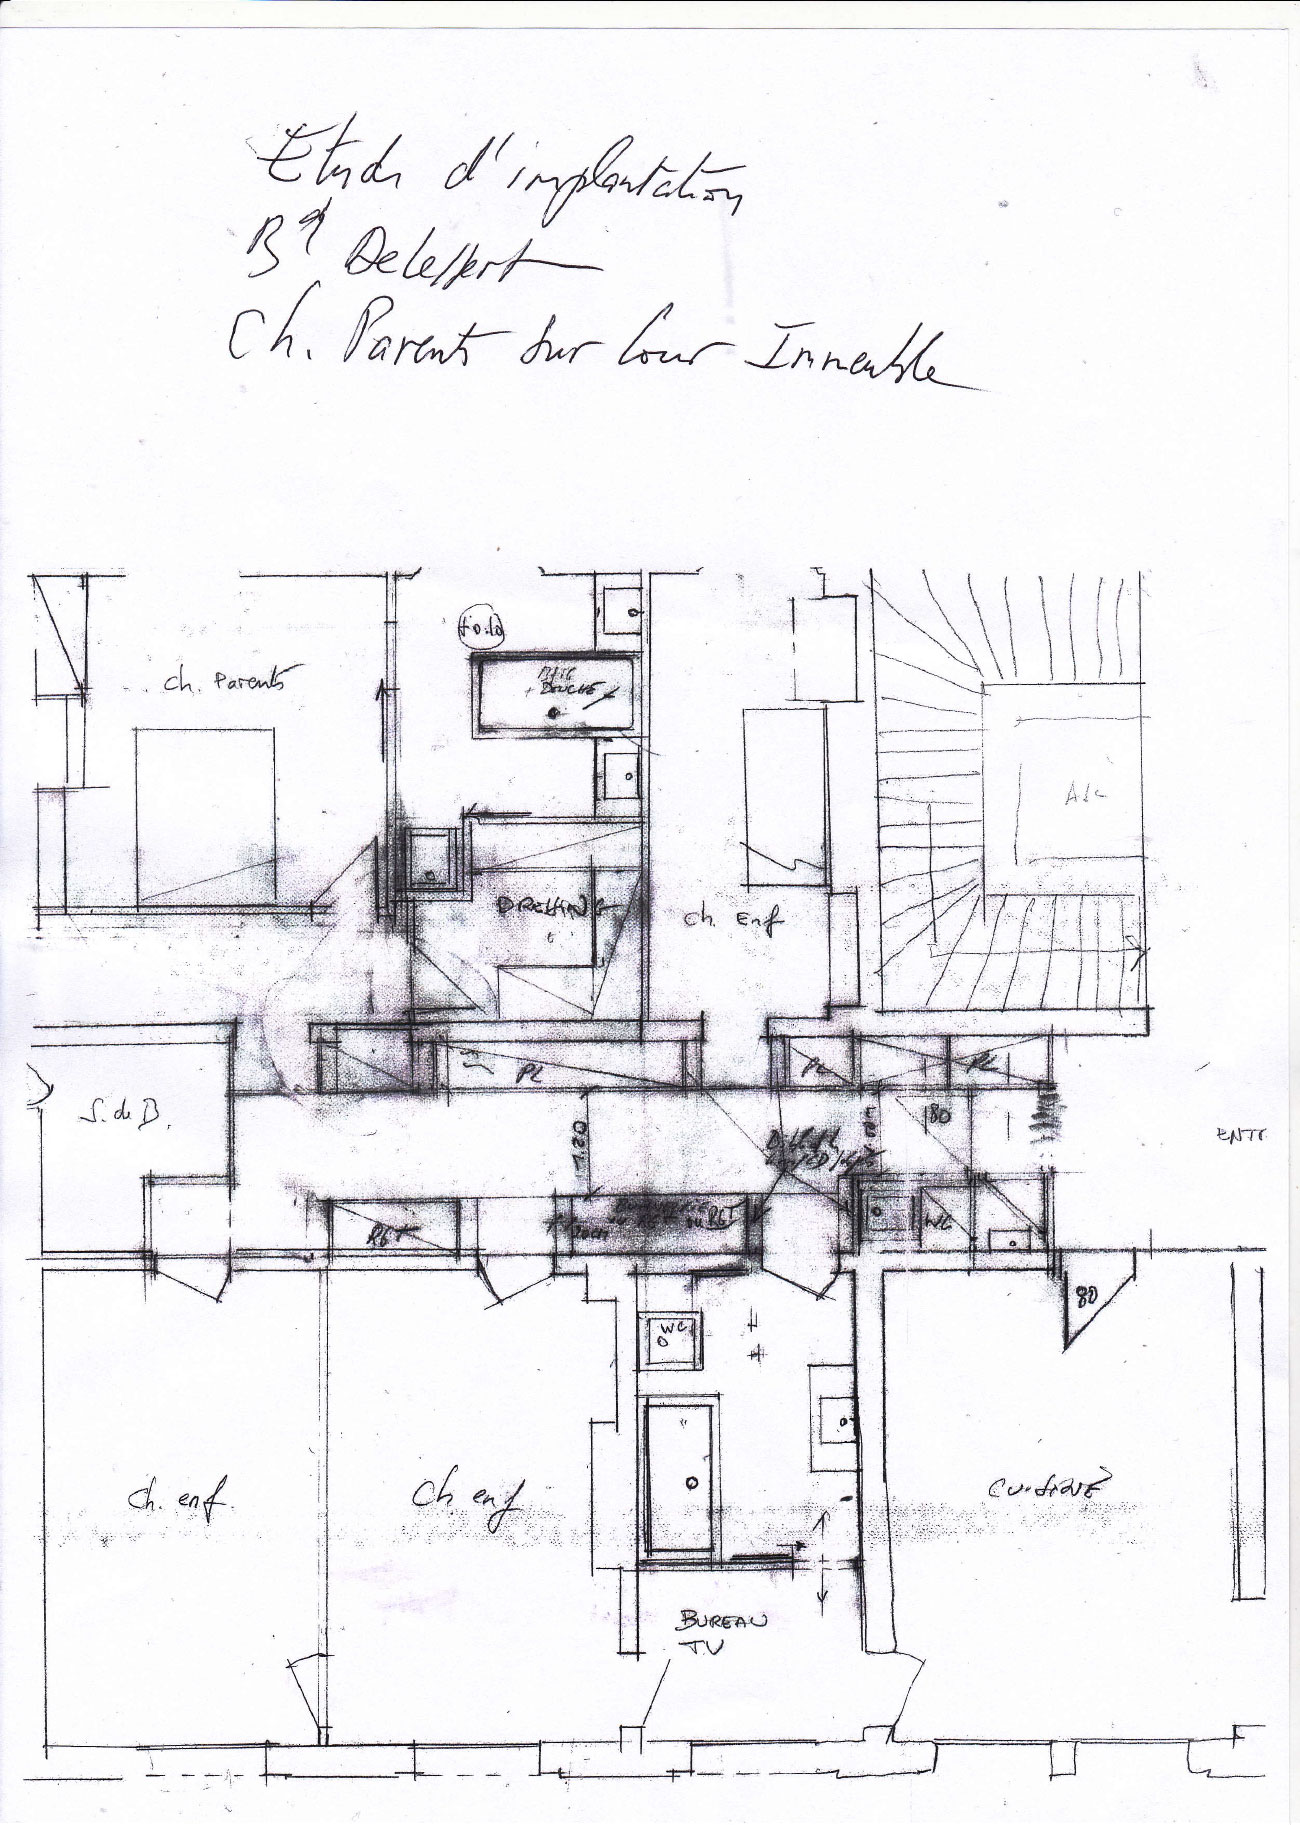 Etude d'implantation
Bd Delessert
Ch. Parents sur Cour Immeuble
Ch. Parents
DOUCHE
Asc
DRESSING
ch. Enf
PL
PL
PL
S. de B.
1.20
80
ENTR
RGT
RGT
WC
80
WC
Ch. enf.
Ch enf
CUISINE
BUREAU
TV